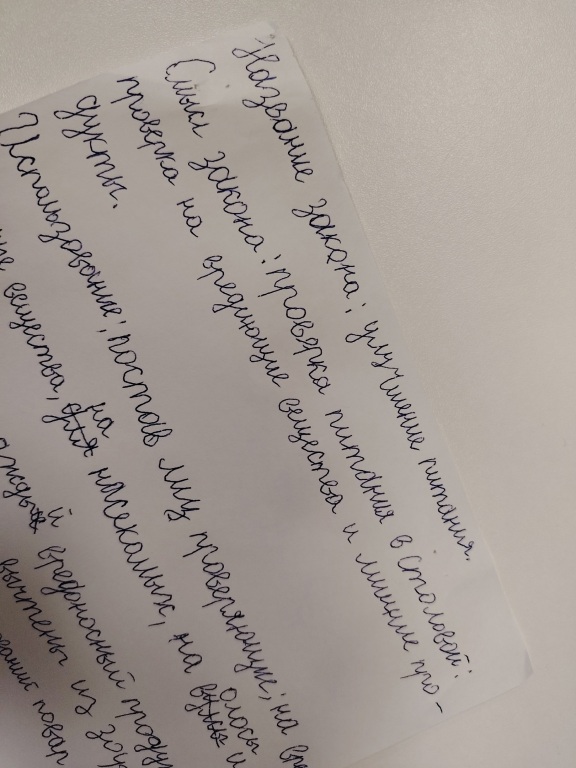 Название закона: улучшение питания.
Смысл закона: проверка питания в столовой:
проверка на вредающие вещества и лишние про-
дукты.
Использование: постав лиц проверяющие; на вре
ные вещества, на насекомых, на волосы и
й вредоносный проду
вычтены из зар
повар